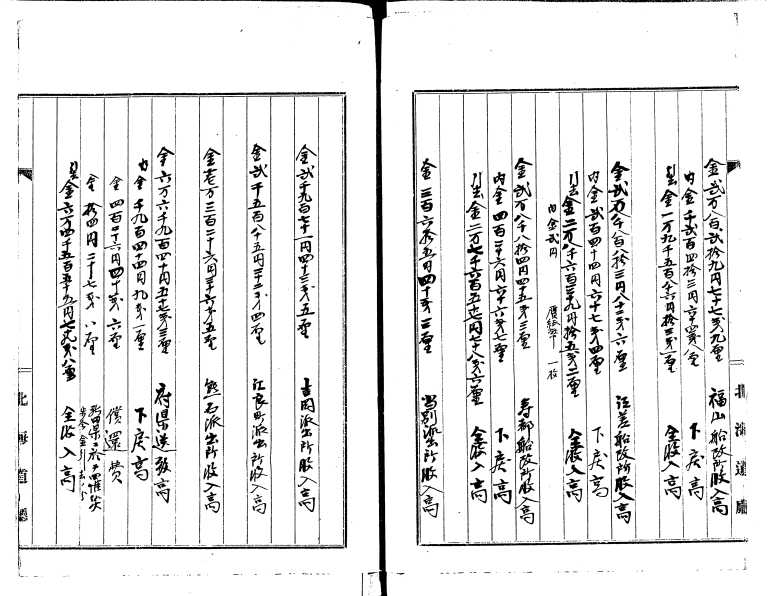 金弐万八百弐拾九円七十七戋九厘 福山船改所収入高
内金千弐百四拾三円六十四戋 下戻高
引金一万九千五百八十六円拾三戋 全収入高
金弐万八千八百八拾三円八十二戋六厘 江差船改所収入高
内金弐百四十四円六十七戋四厘 下戻高
引去金二万八千六百三十九円拾五戋二厘 全収入高
内金弐円 贋紙幣 一枚
金弐万八千八拾四円四十五戋三厘 寿都船改所収入高
内金四百二十六円六十六戋七厘 下戻高
引去金二万七千六百五十七円七十八戋六厘 全収入高
金三百六拾五円四十戋二厘 当別派出所収入高
金弐千九百七十一円四十三戋五厘 吉岡派出所収入高
金弐千五百八十五円三十二戋四厘 江良町派出所収入高
金壱万三百二十六円三十六戋五厘 熊石派出所収入高
金六万六千九百四十円五十七戋三厘 府県送致高
内金千九百四十四円九戋一厘 下戻高
金四百二十六円四十戋六厘 償還費
金拾四円二十七戋八厘
引金六万四千五百五十五円七十九戋八厘 全収入高
北海道庁
北海道庁